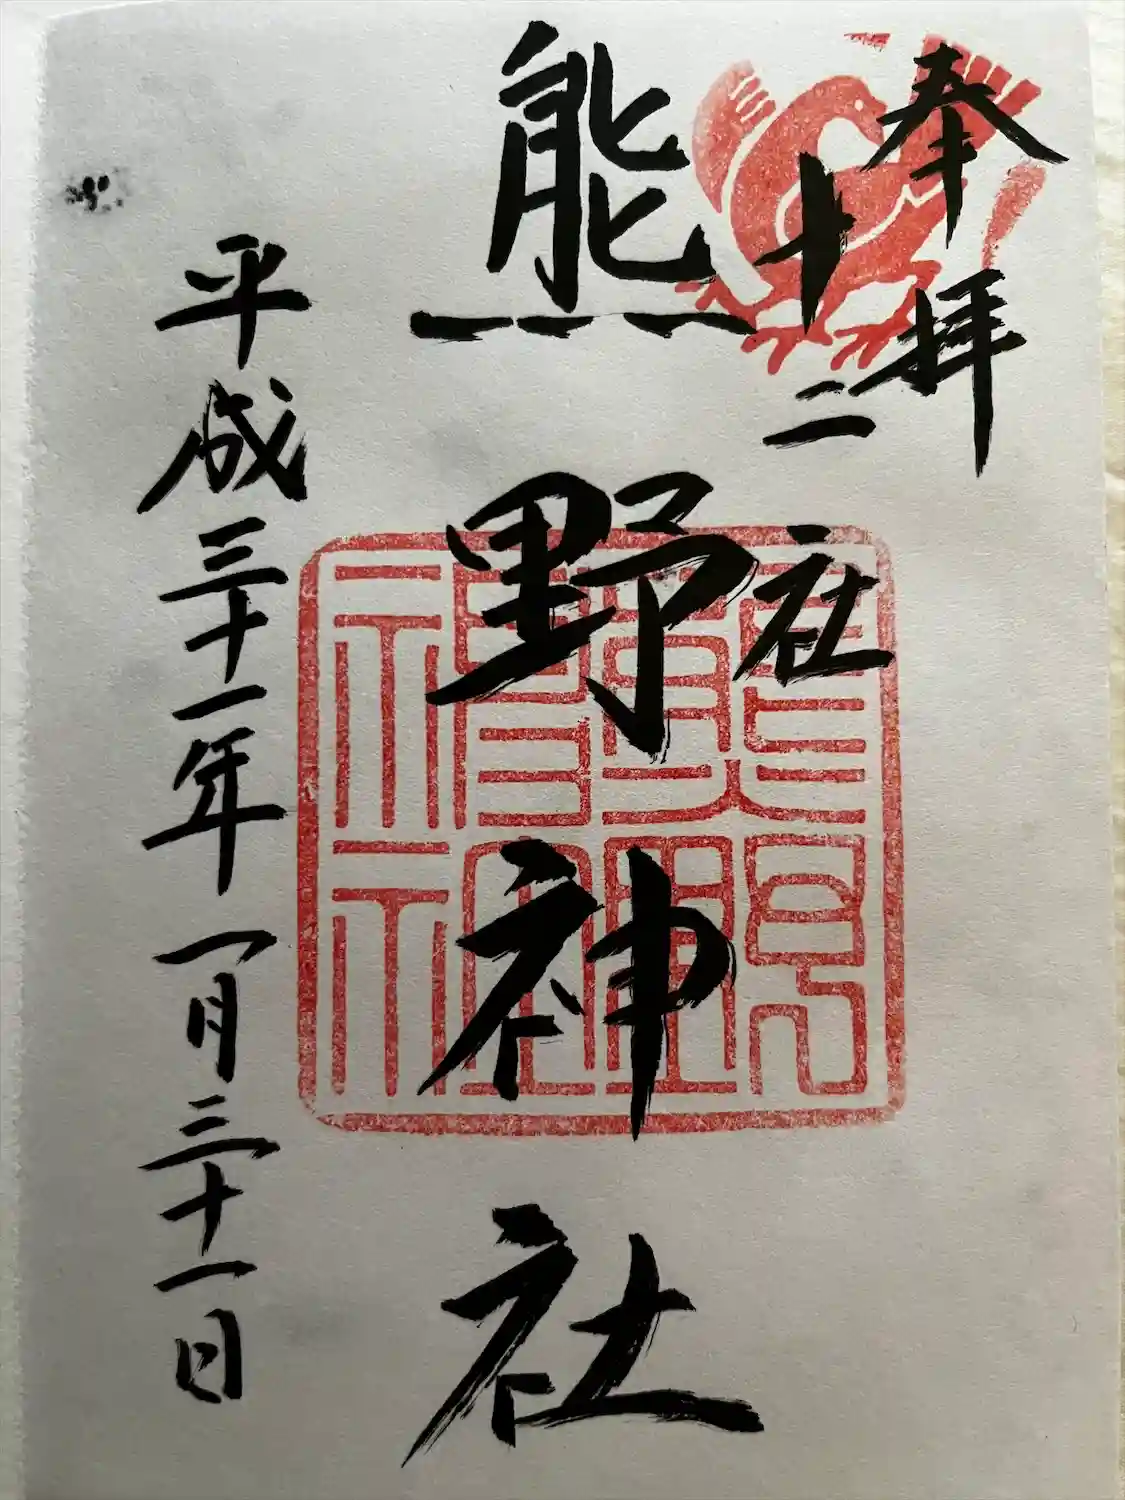 奉拝
十二社
熊野神社
平成三十一年一月三十一日